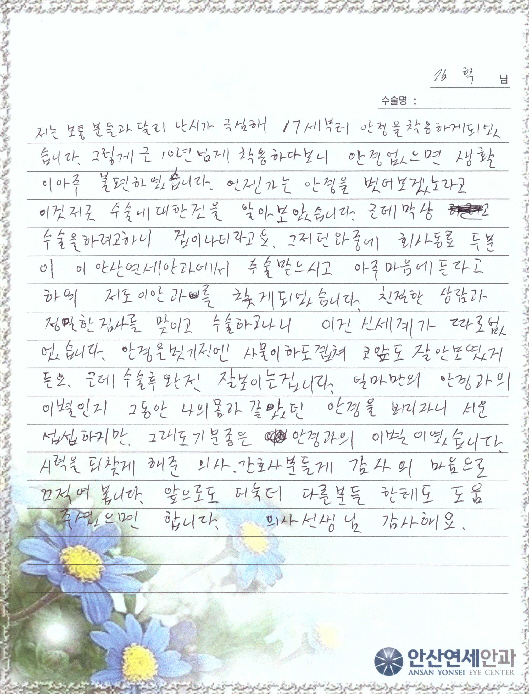 김 혁 님
수술명 :
저는 보통 분들과 달리 난시가 극심해 17세부터 안경을 착용하게되었
습니다. 그렇게 근 10년넘게 착용하다보니 안경없으면 생활
이아주 불편하였습니다. 언젠가는 안경을 벗어보겠노라고
이것저것 수술에대한것을 알아보았습니다. 근데막상
수술을하려고하니 겁이나더라고요. 그러던 와중에 회사동료 두분
이 이 안산연세안과에서 수술받으시고 아주마음에든다고
하며 저도이안과를 찾게되었습니다. 친절한 상담과
정밀한검사를 맞이고 수술하고나니 이건 신세계가 따로없
었습니다. 안경을벗기전엔 사물이하도겹쳐 코앞도 잘안보였거
든요. 근데수술후완전 잘보이는겁니다. 얼마만의 안경과의
이별인지 그동안 나의몸과 같았던 안경을 버리자니 시운
섭섭하지만, 그래도기분좋은 안경과의 이별이였습니다.
시력을되찾게 해준 의사.간호사분들게 감사의 마음으로
끄적여 봅니다. 앞으로도 더욱더 다른분들 한테도 도움
주셨으면 합니다. 의사선생님 감사해요.
안산연세안과
ANSAN YONSEI EYE CENTER